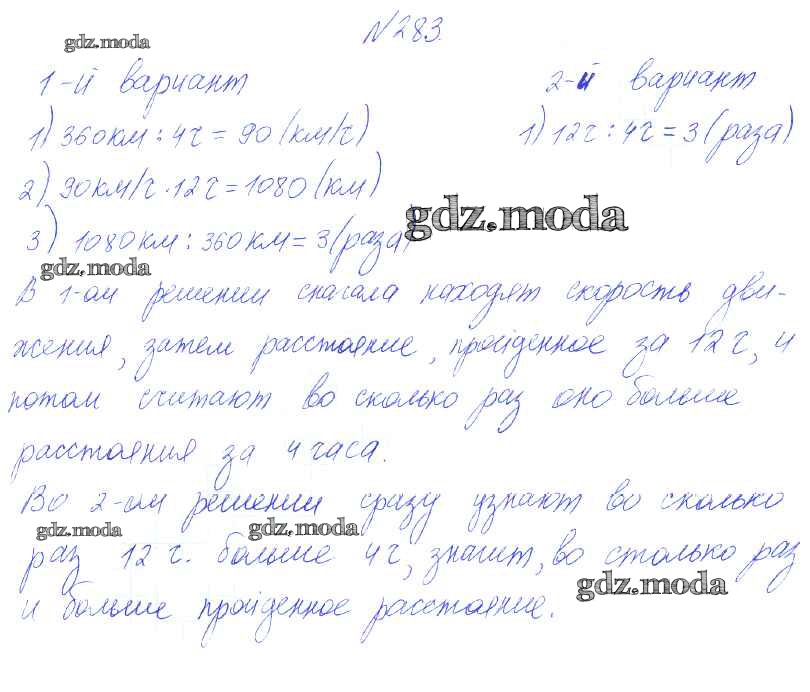 №283.
gdz.moda
1-й вариант 2-й вариант
1) 360км : 4ч = 90 (км/ч) 1) 12ч : 4ч = 3 (раза)
2) 90км/ч · 12ч = 1080 (км)
gdz.moda
3) 1080км : 360км = 3 (раза)
gdz.moda
В 1-ом решении сначала находят скорость дви-
жения, затем расстояние, пройденное за 12ч, и
потом считают во сколько раз оно больше
расстояния за 4 часа.
Во 2-ом решении сразу узнают во сколько
gdz.moda gdz.moda
раз 12ч. больше 4ч, значит, во столько раз
gdz.moda
и больше пройденное расстояние.